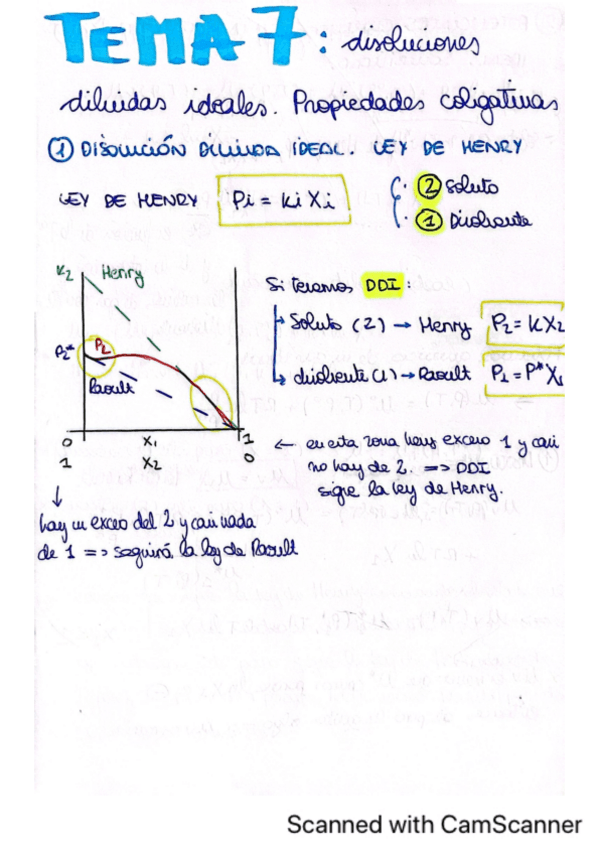 TEMA 7: disoluciones
diluidas ideales. Propiedades coligativas
① DISOLUCIÓN DILUIDA IDEAL. LEY DE HENRY
LEY DE HENRY Pi = ki Xi
② Soluto
① Disolvente
K2 Henry
Si tenemos DDI:
Soluto (2) → Henry P2 = KX2
disolvente (1) → Raoult P1 = P* X1
P2* P2
Raoult
0 X1 1
1 X2 0
← en esta zona hay exceso 1 y casi
no hay de 2. => DDI
sigue la ley de Henry.
↓
hay un exceso del 2 y casi nada
de 1 => seguirá la ley de Raoult
Scanned with CamScanner